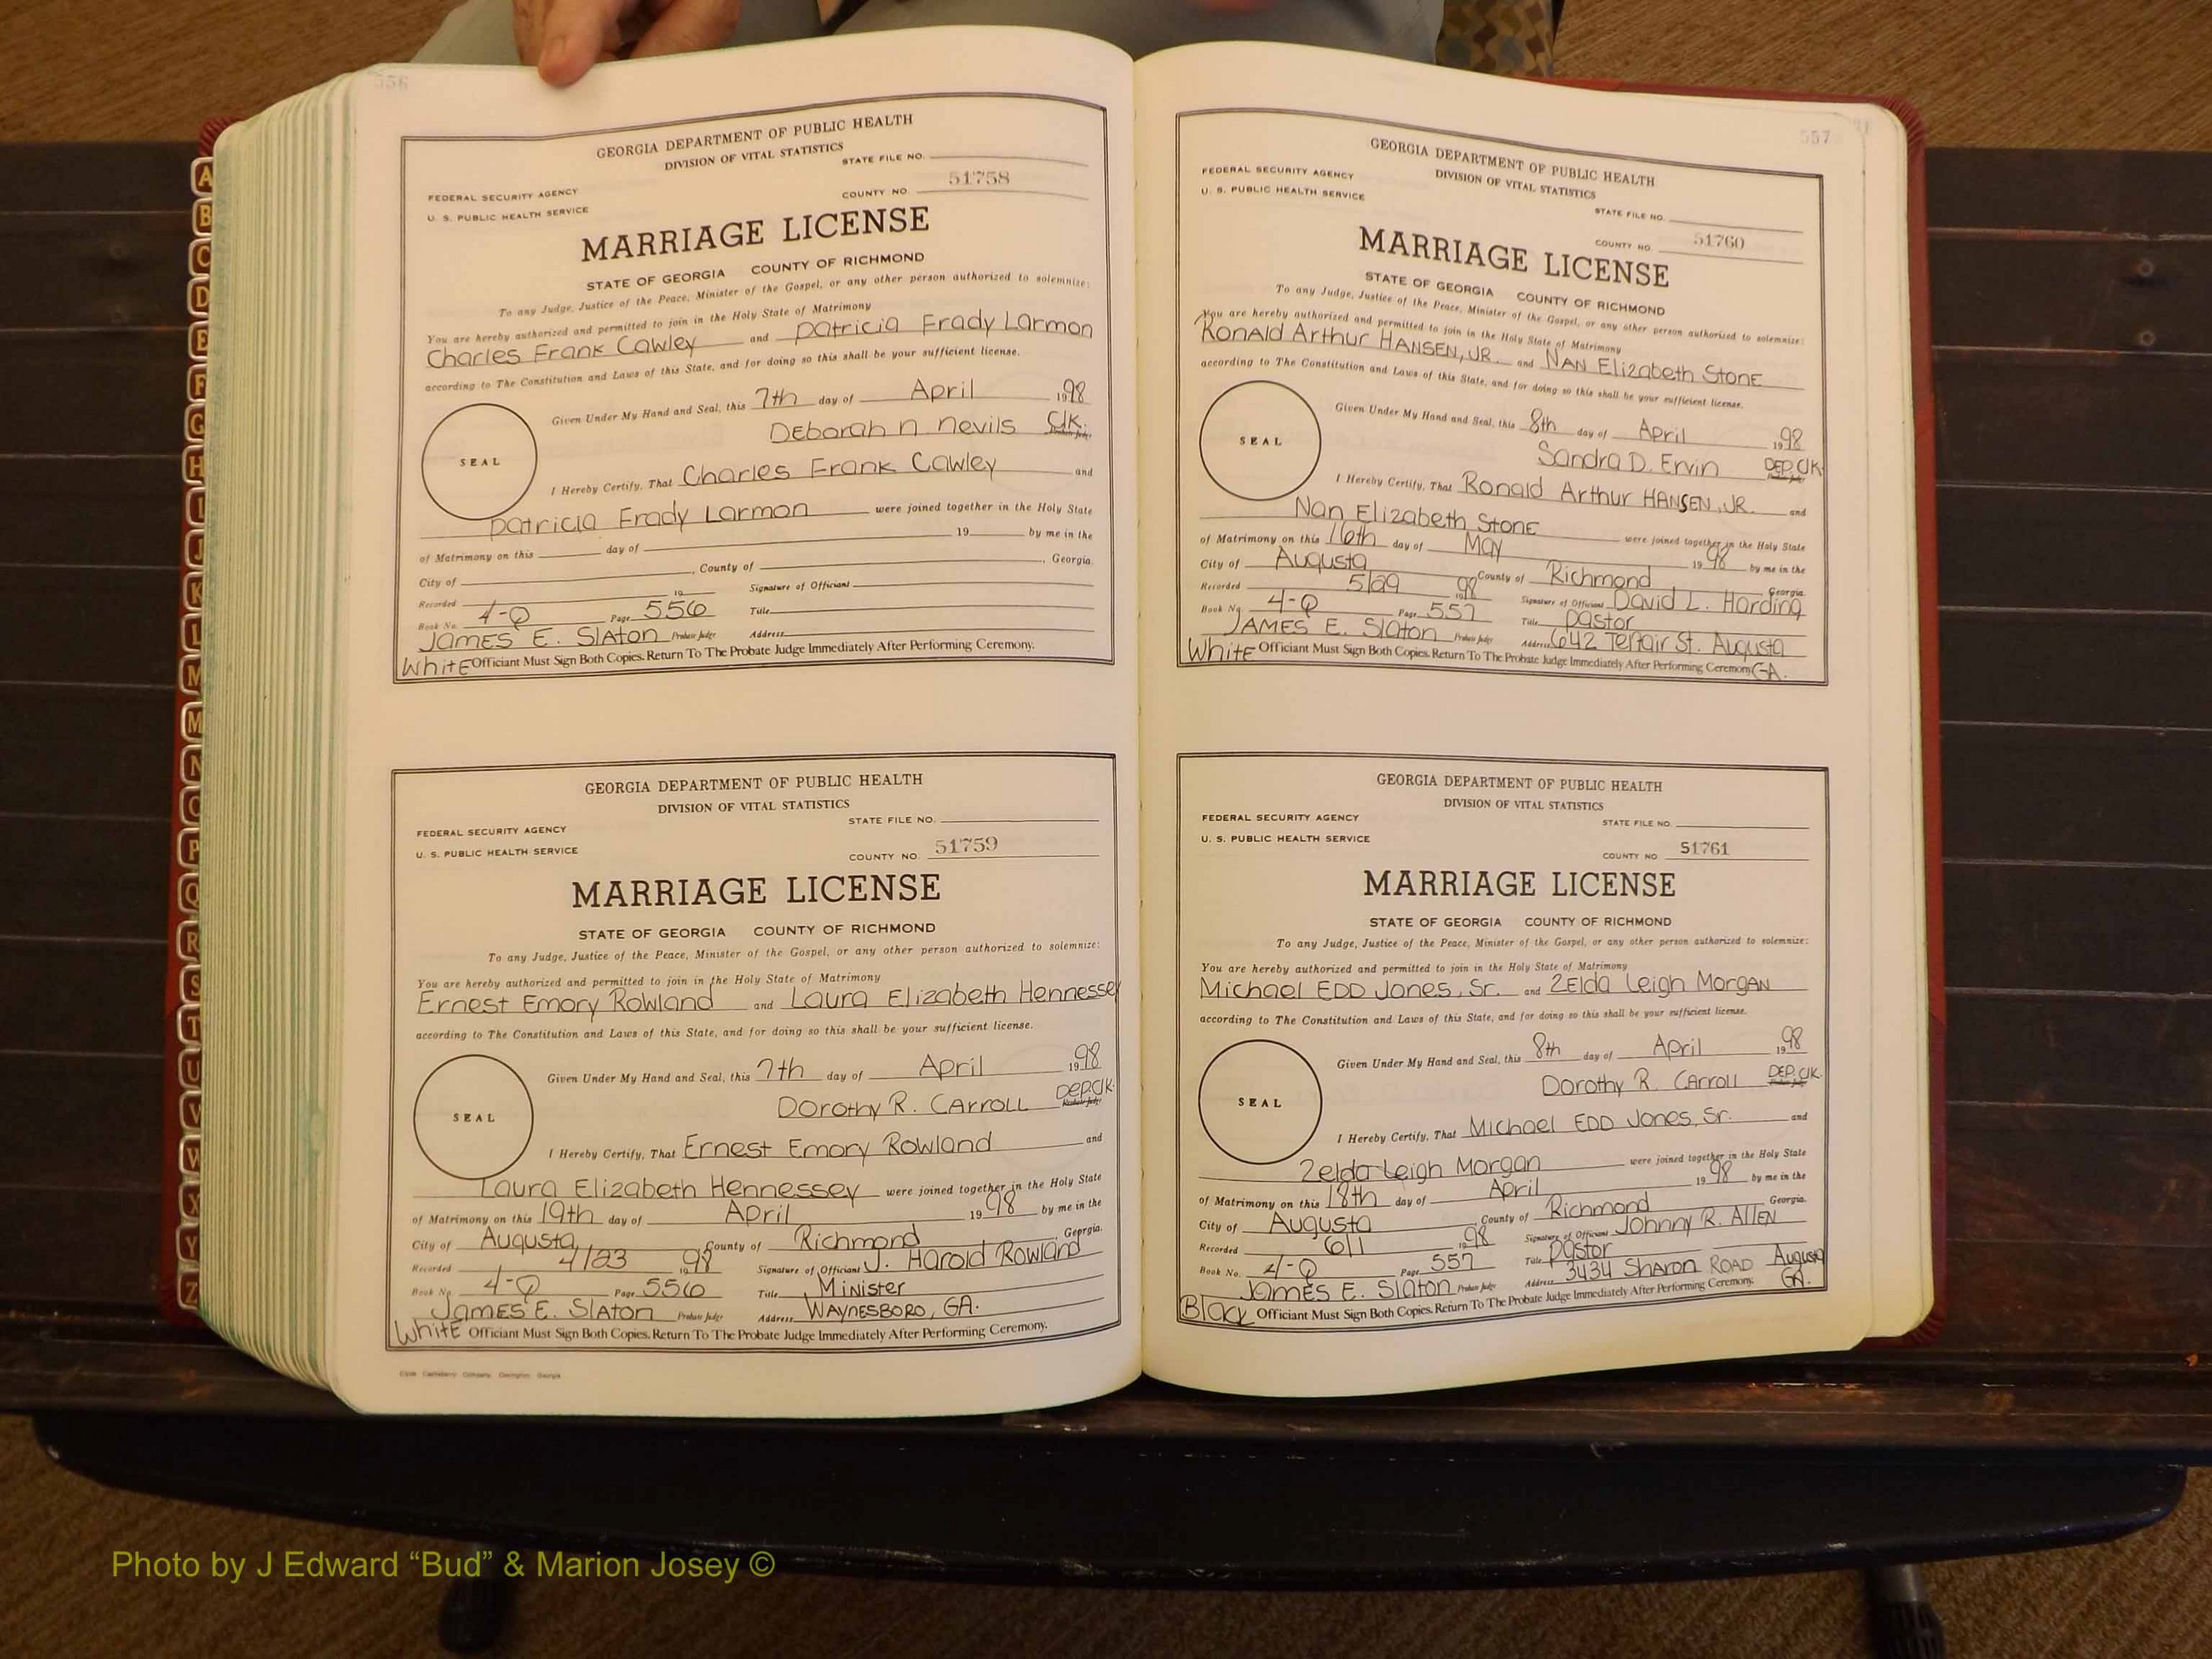 556
GEORGIA DEPARTMENT OF PUBLIC HEALTH
DIVISION OF VITAL STATISTICS
STATE FILE NO.
FEDERAL SECURITY AGENCY
U. S. PUBLIC HEALTH SERVICE
COUNTY NO. 51758
MARRIAGE LICENSE
STATE OF GEORGIA COUNTY OF RICHMOND
To any Judge, Justice of the Peace, Minister of the Gospel, or any other person authorized to solemnize:
You are hereby authorized and permitted to join in the Holy State of Matrimony
Charles Frank Cawley and Patricia Frady Larmon
according to The Constitution and Laws of this State, and for doing so this shall be your sufficient license.
Given Under My Hand and Seal, this 7th day of April 1998
Deborah N Nevils Clk.
SEAL
I Hereby Certify, That Charles Frank Cawley and
Patricia Frady Larmon were joined together in the Holy State
of Matrimony on this day of 19 by me in the
City of , County of , Georgia.
Recorded 19 Signature of Officiant
Book No. 4-Q Page 556 Title
James E. Slaton Probate Judge Address
White Officiant Must Sign Both Copies. Return To The Probate Judge Immediately After Performing Ceremony.
GEORGIA DEPARTMENT OF PUBLIC HEALTH
DIVISION OF VITAL STATISTICS
STATE FILE NO.
FEDERAL SECURITY AGENCY
U. S. PUBLIC HEALTH SERVICE
COUNTY NO. 51759
MARRIAGE LICENSE
STATE OF GEORGIA COUNTY OF RICHMOND
To any Judge, Justice of the Peace, Minister of the Gospel, or any other person authorized to solemnize:
You are hereby authorized and permitted to join in the Holy State of Matrimony
Ernest Emory Rowland and Laura Elizabeth Hennessey
according to The Constitution and Laws of this State, and for doing so this shall be your sufficient license.
Given Under My Hand and Seal, this 7th day of April 1998
Dorothy R. Carroll Dep. Clk.
SEAL
I Hereby Certify, That Ernest Emory Rowland and
Laura Elizabeth Hennessey were joined together in the Holy State
of Matrimony on this 19th day of April 1998 by me in the
City of Augusta, County of Richmond, Georgia.
Recorded 4/23 1998 Signature of Officiant J. Harold Rowland
Book No. 4-Q Page 556 Title Minister
James E. Slaton Probate Judge Address Waynesboro, GA.
White Officiant Must Sign Both Copies. Return To The Probate Judge Immediately After Performing Ceremony.
557
GEORGIA DEPARTMENT OF PUBLIC HEALTH
DIVISION OF VITAL STATISTICS
FEDERAL SECURITY AGENCY
U. S. PUBLIC HEALTH SERVICE
STATE FILE NO.
COUNTY NO. 51760
MARRIAGE LICENSE
STATE OF GEORGIA COUNTY OF RICHMOND
To any Judge, Justice of the Peace, Minister of the Gospel, or any other person authorized to solemnize:
You are hereby authorized and permitted to join in the Holy State of Matrimony
Ronald Arthur Hansen, Jr. and Nan Elizabeth Stone
according to The Constitution and Laws of this State, and for doing so this shall be your sufficient license.
Given Under My Hand and Seal, this 8th day of April 1998
Sandra D. Ervin Dep. Clk.
SEAL
I Hereby Certify, That Ronald Arthur Hansen, Jr. and
Nan Elizabeth Stone were joined together in the Holy State
of Matrimony on this 16th day of May 1998 by me in the
City of Augusta County of Richmond Georgia.
Recorded 5/29 1998 Signature of Officiant David L. Harding
Book No. 4-Q Page 557 Title Pastor
James E. Slaton Probate Judge Address 642 Telfair St. Augusta
White Officiant Must Sign Both Copies. Return To The Probate Judge Immediately After Performing Ceremony. GA.
GEORGIA DEPARTMENT OF PUBLIC HEALTH
DIVISION OF VITAL STATISTICS
FEDERAL SECURITY AGENCY
STATE FILE NO.
U. S. PUBLIC HEALTH SERVICE
COUNTY NO 51761
MARRIAGE LICENSE
STATE OF GEORGIA COUNTY OF RICHMOND
To any Judge, Justice of the Peace, Minister of the Gospel, or any other person authorized to solemnize:
You are hereby authorized and permitted to join in the Holy State of Matrimony
Michael Edd Jones, Sr. and Zelda Leigh Morgan
according to The Constitution and Laws of this State, and for doing so this shall be your sufficient license.
Given Under My Hand and Seal, this 8th day of April 1998
Dorothy R. Carroll Dep. Clk.
SEAL
I Hereby Certify, That Michael Edd Jones, Sr. and
Zelda Leigh Morgan were joined together in the Holy State
of Matrimony on this 18th day of April 1998 by me in the
City of Augusta, County of Richmond Georgia.
Recorded 6/1 1998 Signature of Officiant Johnny R. Allen
Book No. 4-Q Page 557 Title Pastor
James E. Slaton Probate Judge Address 3434 Sharon Road Augusta
Black Officiant Must Sign Both Copies. Return To The Probate Judge Immediately After Performing Ceremony. GA.
A
B
C
D
E
F
G
H
I
J
K
L
M
M
N
O
P
Q
R
S
T
U
V
W
X
Y
Z
Photo by J Edward “Bud” & Marion Josey ©